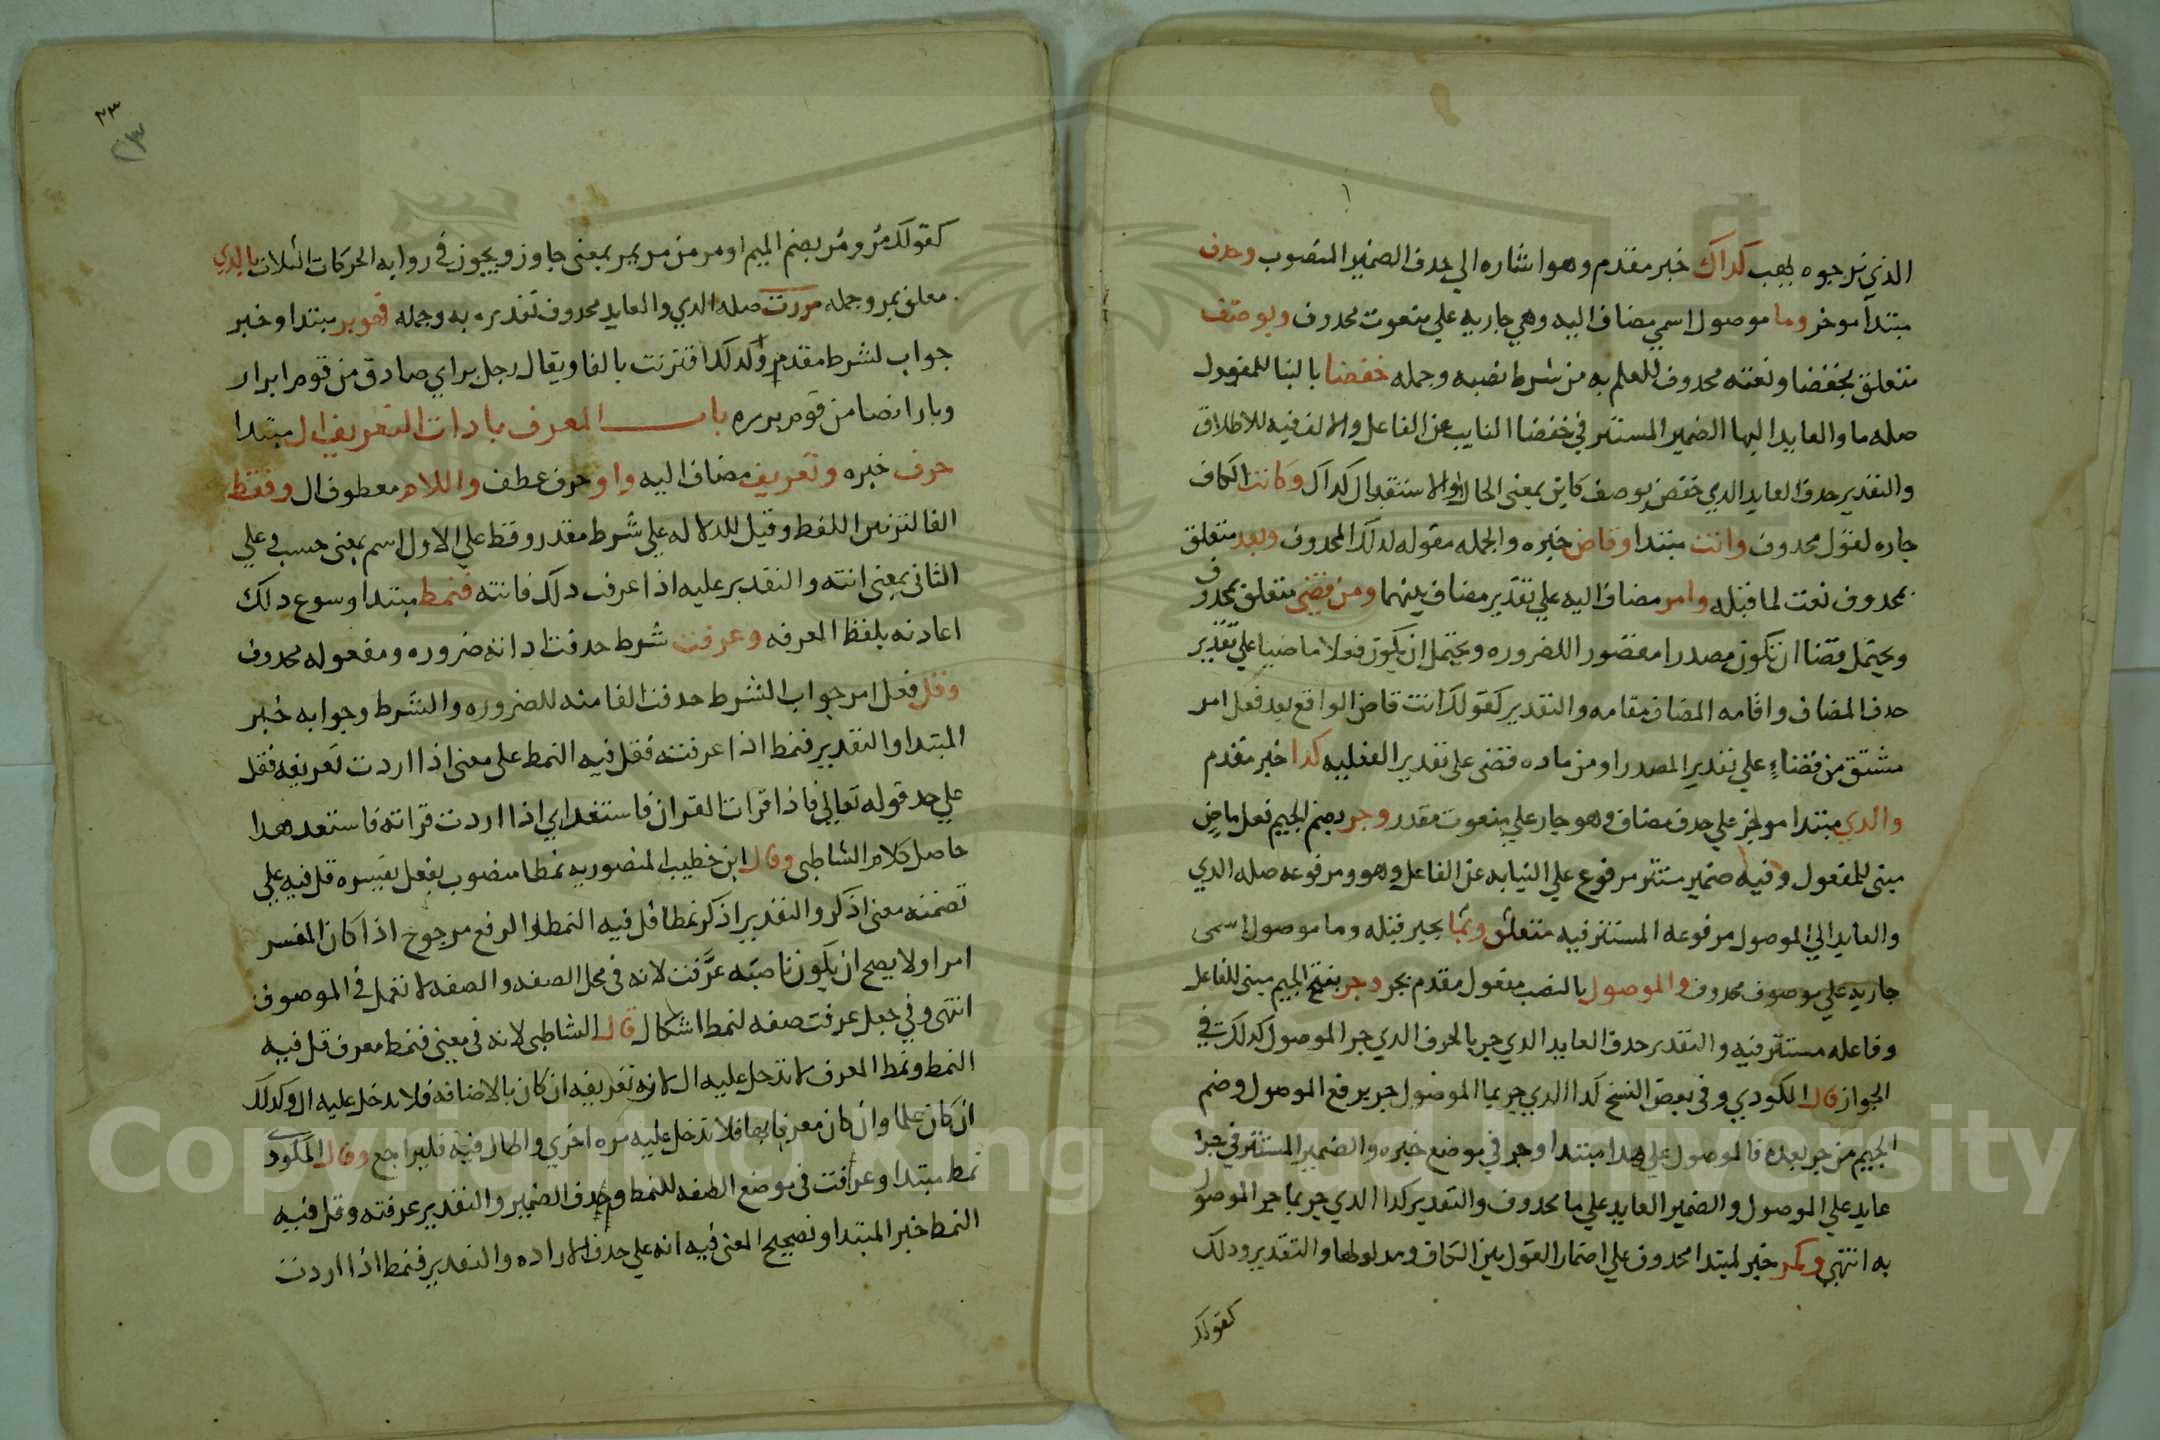 الذي نرجوه يهب كداك خبر مقدم وهو اشاره الي حدف الضمير المنصوب وحدف
مبتدا موخر وما موصول اسمي مضاف اليه وهي جاريه علي منعوت محدوف وبوصف
متعلق بخفضا ونعته محدوف للعلم به من شرط نصبه وجمله خفضا بالبنا للمفعول
صله ما والعايد اليها الضمير المستتر في خفضا النايب عن الفاعل والالف فيه للاطلاق
والتقدير حدف العايد الدي خفض بوصف كاين بمعني الحال او الاستقبال كداك وكانت الكاف
جاره لقول محدوف وانت مبتدا وقاض خبره والجمله مقوله لدلك المحدوف وبعد متعلق
بمحدوف نعت لما قبله وامر مضاف اليه علي تقدير مضاف بينهما ومن قضي متعلق بمحدوف
ويحتمل قضا ان تكون مصدرا مقصورا للضروره ويحتمل ان يكون فعلا ماضيا علي تقدير
حدف المضاف واقامه المضاف مقامه والتقدير كقولك انت قاض الواقع بعد فعل امر
مشتق من قضاء علي تقدير المصدر او من ماده قضي علي تقدير الفعليه كدا خبر مقدم
والدي مبتدا موخر علي حدف مضاف وهو جار علي منعوت مقدر وجر بضم الجيم فعل ماض
مبني للمفعول وفيه ضمير مستتر مرفوع علي النيابه عن الفاعل وهو ومرفوعه صله الدي
والعايد الي الموصول مرفوعه المستتر فيه وبما متعلق بجر قبله وما موصول اسمي
جاريه علي موصوف محدوف والموصول بالنصب مفعول مقدم بجر وجر بفتح الجيم مبني للفاعل
وفاعله مستتر فيه والتقدير حدف العايد الدي جر بالحرف الدي جر الموصول كدلك في
الجواز قال المكودي وفي بعض النسخ كدا الدي جر بما الموصول جر برفع الموصول وضم
الجيم من جر بعده فالموصول علي هدا مبتدا وجر في موضع خبره والضمير المستتر في جر
عايد علي الموصول والضمير العايد علي ما محدوف والتقدير كدا الدي جر بما جر الموصول
به انتهي وكمر خبر لمبتدا محدوف علي اضمار القول بين الكاف ومدلولها والتقدير ودلك
كقولك
٢٣
كقولك مر ومر بضم الميم او مر من مر يمر بمعني جاوز ويجوز في روايه الحركات الثلاث بالدي
معلق بمر وجمله مررت صله الدي والعايد محدوف تقديره به وجمله فهو بر مبتدا وخبر
جواب لشرط مقدم ولدلك اقترنت بالفا ويقال رجل بر اي صادق من قوم ابرار
وبار ايضا من قوم برره باب المعرف بادات التعريف ال مبتدا
حرف خبره وتعريف مضاف اليه واو حرف عطف واللام معطوف ال وفقط
الفا لتزيين اللفظ وقيل للدلاله علي شرط مقدر وقط علي الاول اسم بمعني حسب وعلي
الثاني بمعني انته والتقدير عليه اذا عرف دلك فانته فنمط مبتدا وسوع دلك
اعادته بلفظ المعرفه وعرفت شرط حدفت اداته ضروره ومفعوله محدوف
وقل فعل امر جواب الشرط حدفت الفا منه للضروره والشرط وجوابه خبر
المبتدا والتقدير فنمط اذا عرفته فقل فيه النمط علي معني اذا اردت تعريفه فقل
علي حد قوله تعالي فاذا قرات القران فاستعد اي اذا اردت قراته فاستعد هدا
حاصل كلام الشاطبي وقال ابن خطيب المنصوريه نمطا منصوب بفعل يفسره قل فيه علي
تضمنه معني اذكر والتقدير اذكر نمطا قل فيه النمط والرفع مرجوح اذا كان المفسر
امرا ولا يصح ان يكون ناصبه عرفت لانه في محل الصفه والصفه لا تعمل في الموصوف
انتهي وفي جعل عرفت صفه لنمط اشكال قال الشاطبي لانه في معني فنمط معرف قل فيه
النمط ونمط المعرف لا تدخل عليه ال لانه تعريفه ان كان بالاضافه فلا تدخل عليه ال وكدلك
ان كان علما وان كان معرفا بها فلا تدخل عليه مره اخري واطال فيه فليراجع وقال المكودي
نمط مبتدا وعرفت في موضع الصفه للنمط وحدف الضمير والتقدير عرفته وقل فيه
النمط خبر المبتدا وتصحيح المعني فيه انه علي حدف الاراده والتقدير فنمط اذا اردت
Copyright © King Saud University